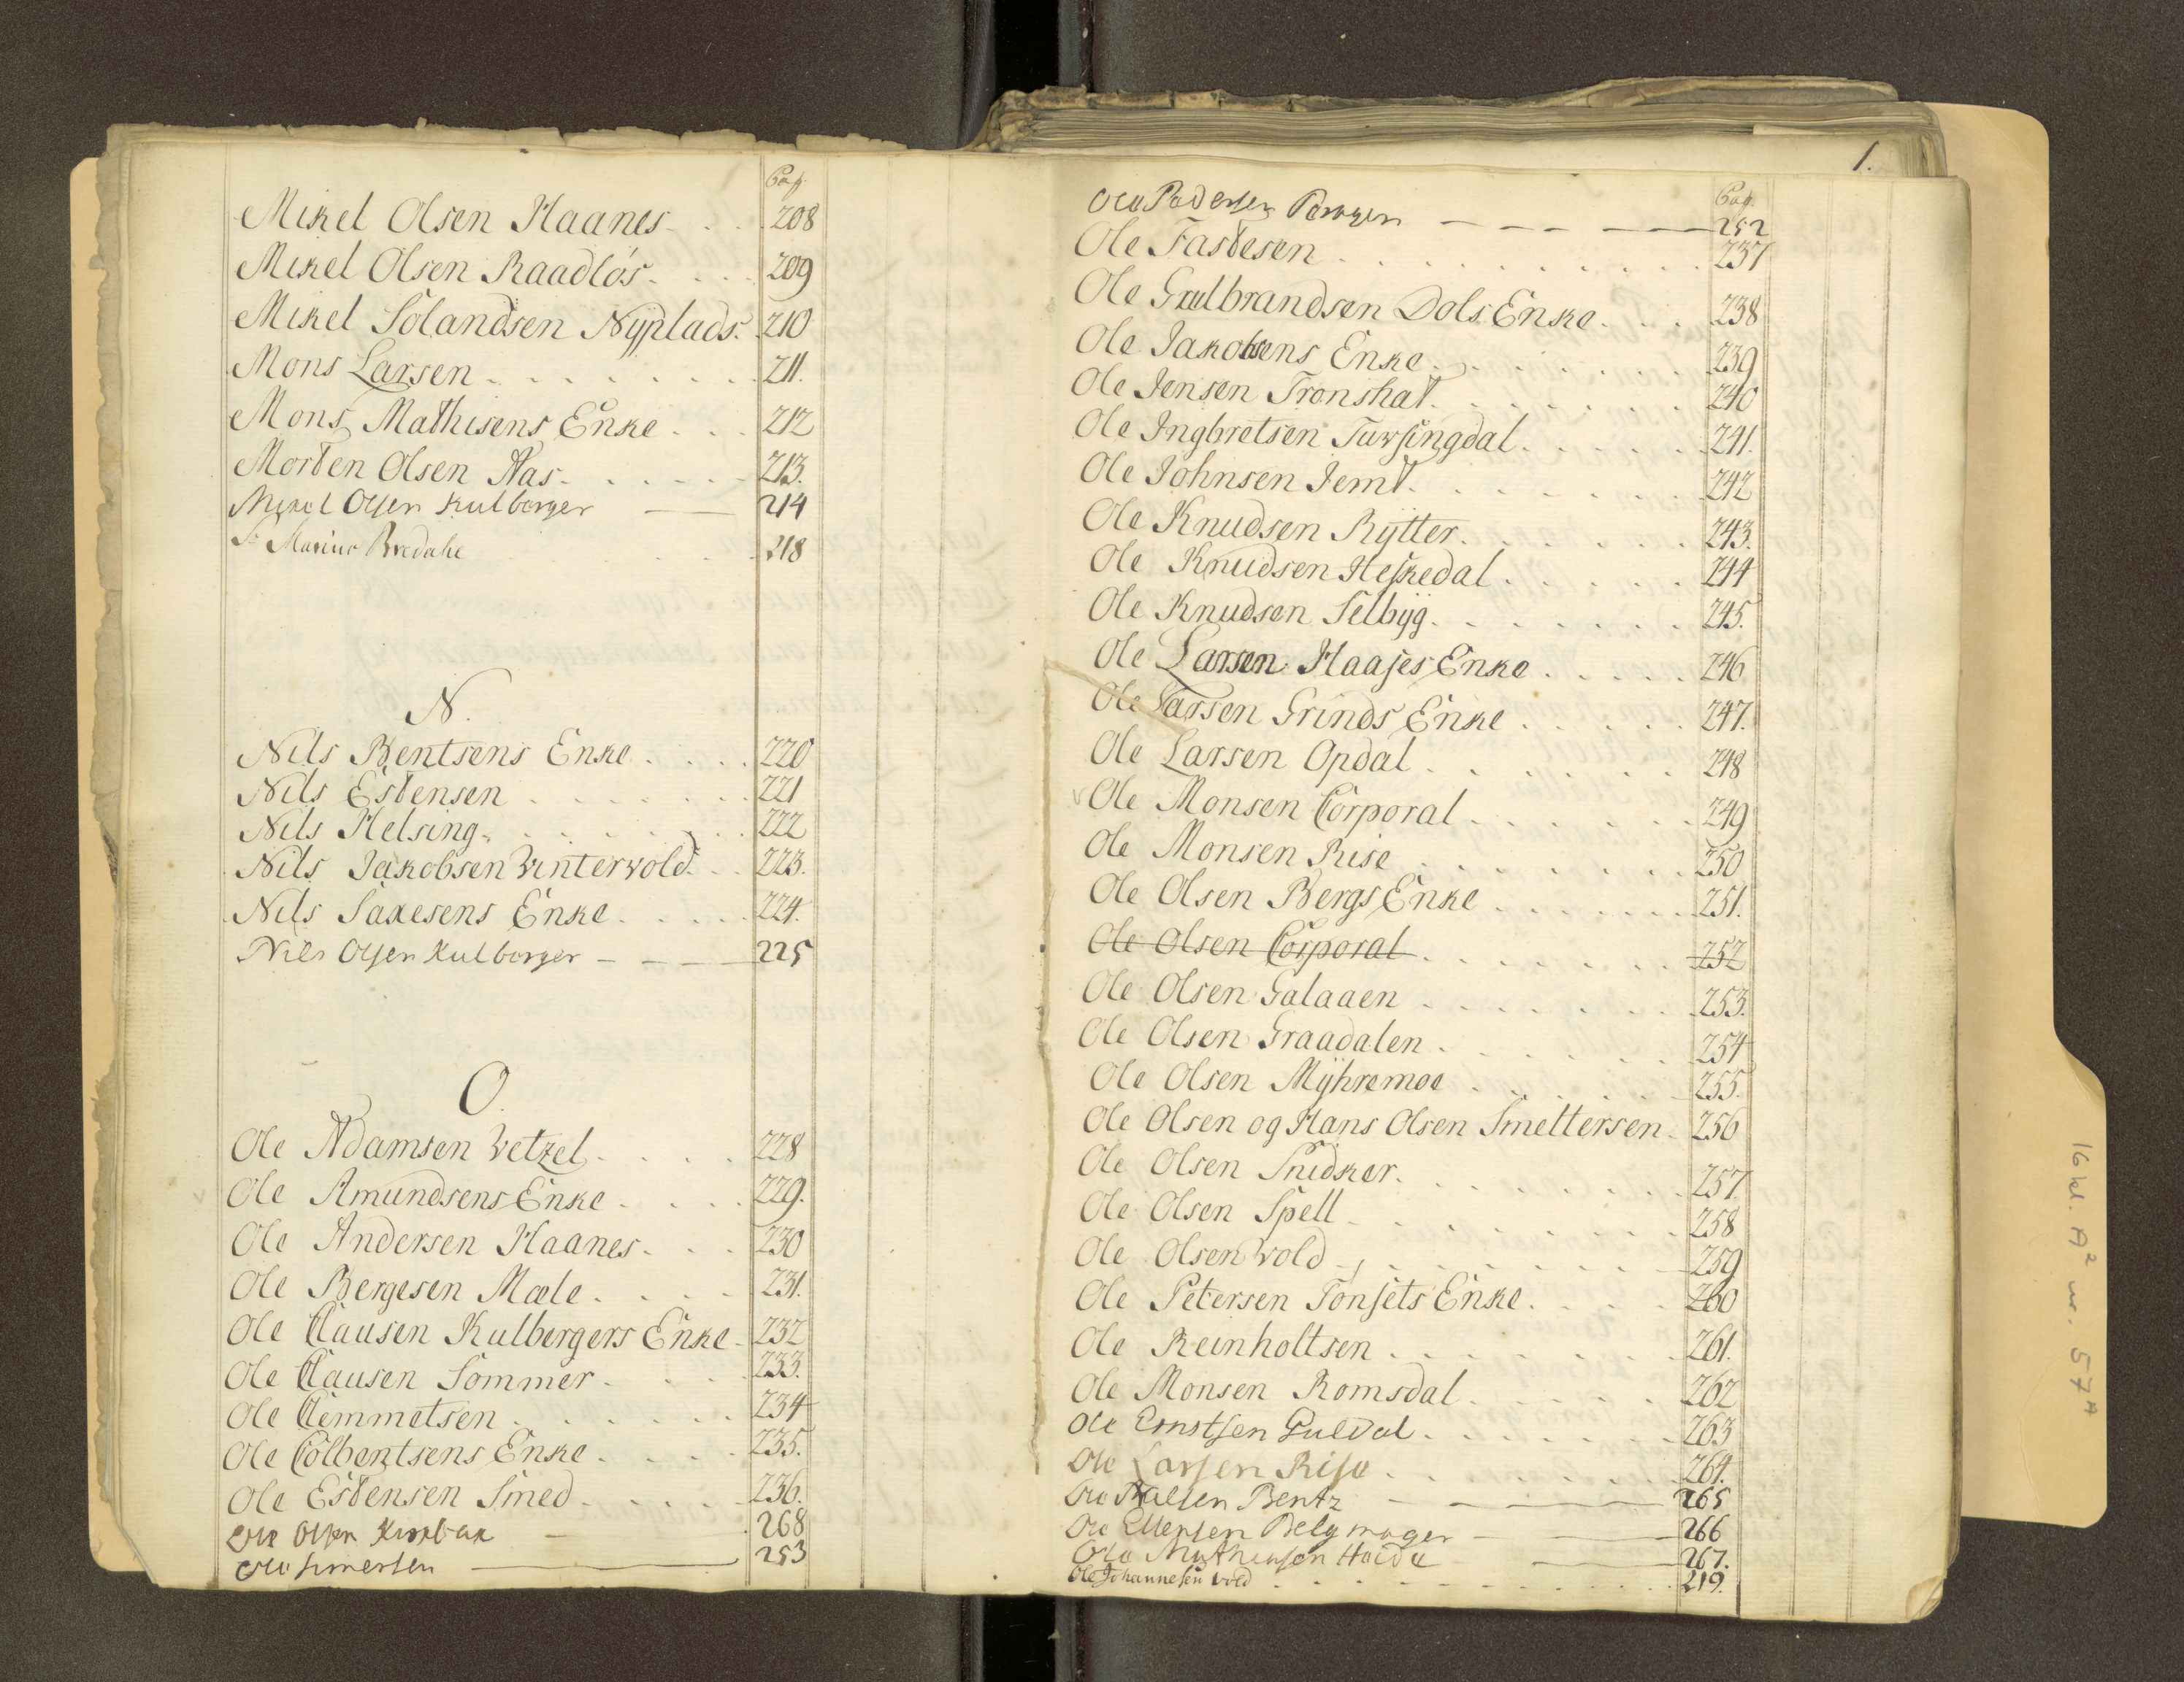 Pag.
Mikel Olsen Haanes 208
Mikel Olsen Raadlös 209
Mikel Solandsen Nÿplads 210
Mons Larsen 211.
Mons Mathisens Enke 212
Morten Olsen Aas 213.
Mikel Olsen Kulberger 214
Sr Marius Bredahl 218
N.
Nils Bentsens Enke 220
Nils Estensen 221
Nils Helsing 222
Nils Jakobsen Vintervold 223.
Nils Saxesens Enke 224.
Nils Olsen Kulberger 225
O.
Ole Adamsen Vetzel 228
Ole Amundsens Enke 229.
Ole Andersen Haanes 230
Ole Bergesen Mæle 231.
Ole Clausen Kulbergers Enke 232
Ole Clausen Sommer 233.
Ole Clemmetsen 234
Ole Colbentsens Enke 235.
Ole Estensen Smed 236.
Ole Olsen Kurbak 268
Ole 253
1.
Pag.
Ole Pedersen 252
Ole Fastesen 237
Ole Gulbrandsen Dols Enke 238
Ole Jakobsens Enke 239
Ole Jensen Tronshat 240
Ole Ingbretsen Tufsingdal 241.
Ole Johnsen Jemt 242
Ole Knudsen Rÿtter 243.
Ole Knudsen Heskedal 244
Ole Knudsen Selbÿg 245.
Ole Larsen Haasjes Enke 246
Ole Larsen Grinds Enke 247.
Ole Larsen Opdal 248
Ole Monsen Corporal 249
Ole Monsen Rise 250
Ole Olsen Bergs Enke 251.
Ole Olsen Corporal 252
Ole Olsen Galaaen 253.
Ole Olsen Graadalen 254
Ole Olsen Mÿhremoe 255.
Ole Olsen og Hans Olsen Smeltersen 256
Ole Olsen Snidker 257.
Ole Olsen Spell 258
Ole Olsen Vold 259
Ole Petersen Tonsets Enke 260
Ole Reinholtsen 261.
Ole Monsen Romsdal 262
Ole Ernstsen Guldal 263
Ole Larsen Rise 264.
Ole Bentz 265
Ole Ellefsen Belgmager 266
Ole Mathiesen Heide 267.
Ole Johannesen Vold 219.
16 kl. A² nr. 57 A